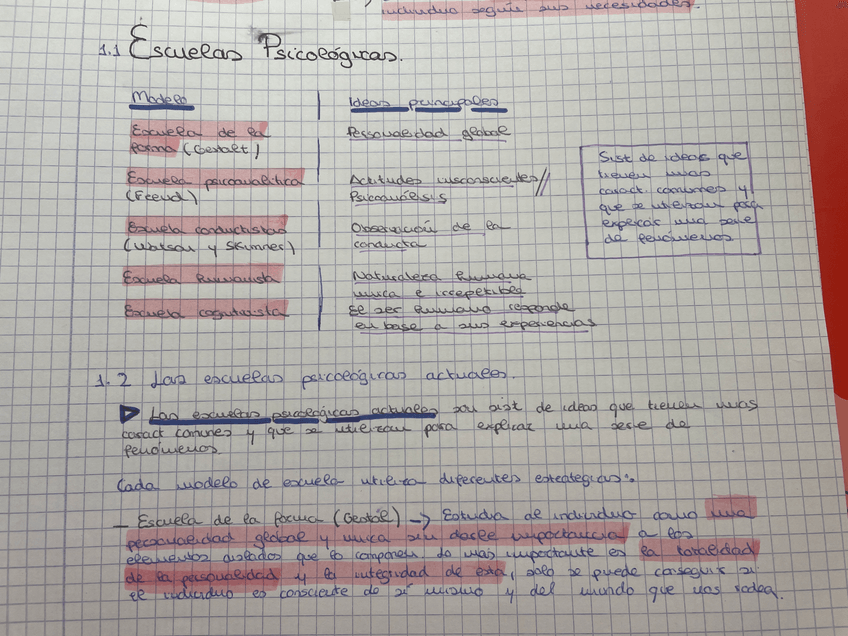 individuo seguir sus necesidades.
1.1 Escuelas Psicológicas.
Modelo
Ideas principales
Escuela de la
forma (Gestalt)
Personalidad global
Escuela psicoanalítica
(Freud)
Actitudes insconscientes//
Psicoanálisis
Escuela conductista
(Watson y Skinner)
Observación de la
conducta
Escuela humanista
Naturaleza humana
unica e irrepetible
Escuela cognitivista
El ser humano responde
en base a sus experiencias
Sist de ideas que
tienen unas
caract comunes y
que se utilizan para
explicar una serie
de fenómenos
1.2 Las escuelas psicológicas actuales.
Las escuelas psicológicas actuales son sist de ideas que tienen unas
caract comunes y que se utilizan para explicar una serie de
fenómenos
Cada modelo de escuela utiliza diferentes estrategias:
- Escuela de la forma (Gestal) -> Estudia al individuo como una
personalidad global y unica sin darle importancia a los
elementos aislados que lo componen. Lo mas importante es la totalidad
de la personalidad y la integridad de esta, solo se puede conseguir si
el individuo es consciente de sí mismo y del mundo que nos rodea.